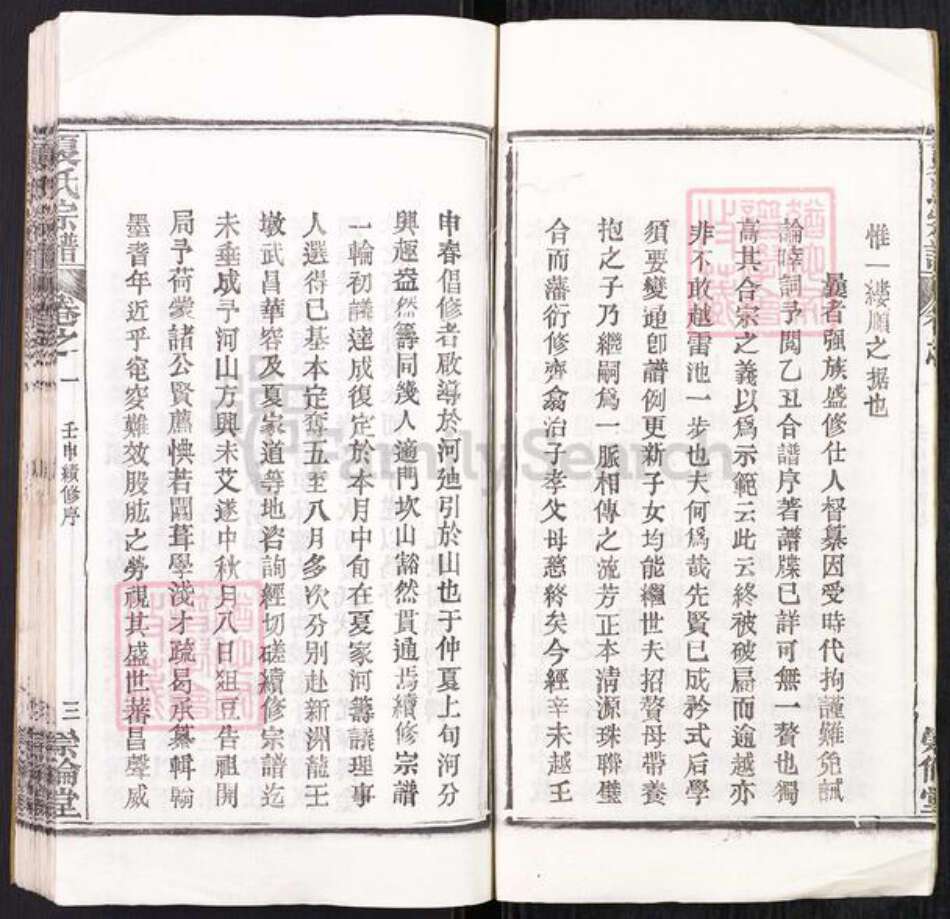 惟一縷順之据也
曩者强族盛修仕人督纂因受時代拘謹難免誡
論啐詞予閲乙丑合譜序著譜牒已詳可無一贅也獨
高其合宗之義以爲示範云此云終被破扁而逾越亦
非不敢越雷池一步也夫何爲哉先賢已成矜式后學
須要變通卽譜例更新子女均能繼世夫招贅母帶養
抱之子乃繼嗣爲一脈相傳之流芳正本清源珠聯璧
合而藩衍修齊翕治子孝父母慈終矣今經辛未越壬
申春倡修者啟導於河廸引於山也于仲夏上旬河分
興趣益然籌同幾人適門坎山豁然貫通焉續修宗譜
一輪初議達成復定於本月中旬在夏家河籌議理事
人選得已基本定奪五至八月多次分別赴新洲龍王
墩武昌華容及夏家道等地咨詢經切磋續修宗譜迄
未垂成予河山方興未艾遂中秋月八日俎豆告祖開
局予荷蒙諸公賢薦愧若闒葺學淺才疏曷承纂輯翰
墨耆年近乎窀穸難效股肱之勞視其盛世蕃昌聲威
氏宗譜
卷之一
壬申續修序
三
崇倫堂
FamilySearch